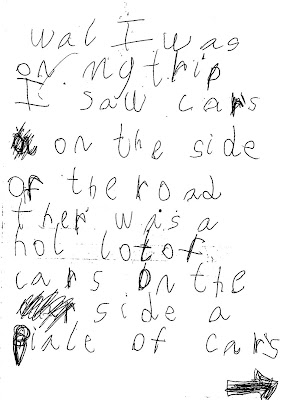 wal I was
on my trip
I saw cars
on the side
of the road
ther was a
hol lot of
cars on the
side a
Piale of cars